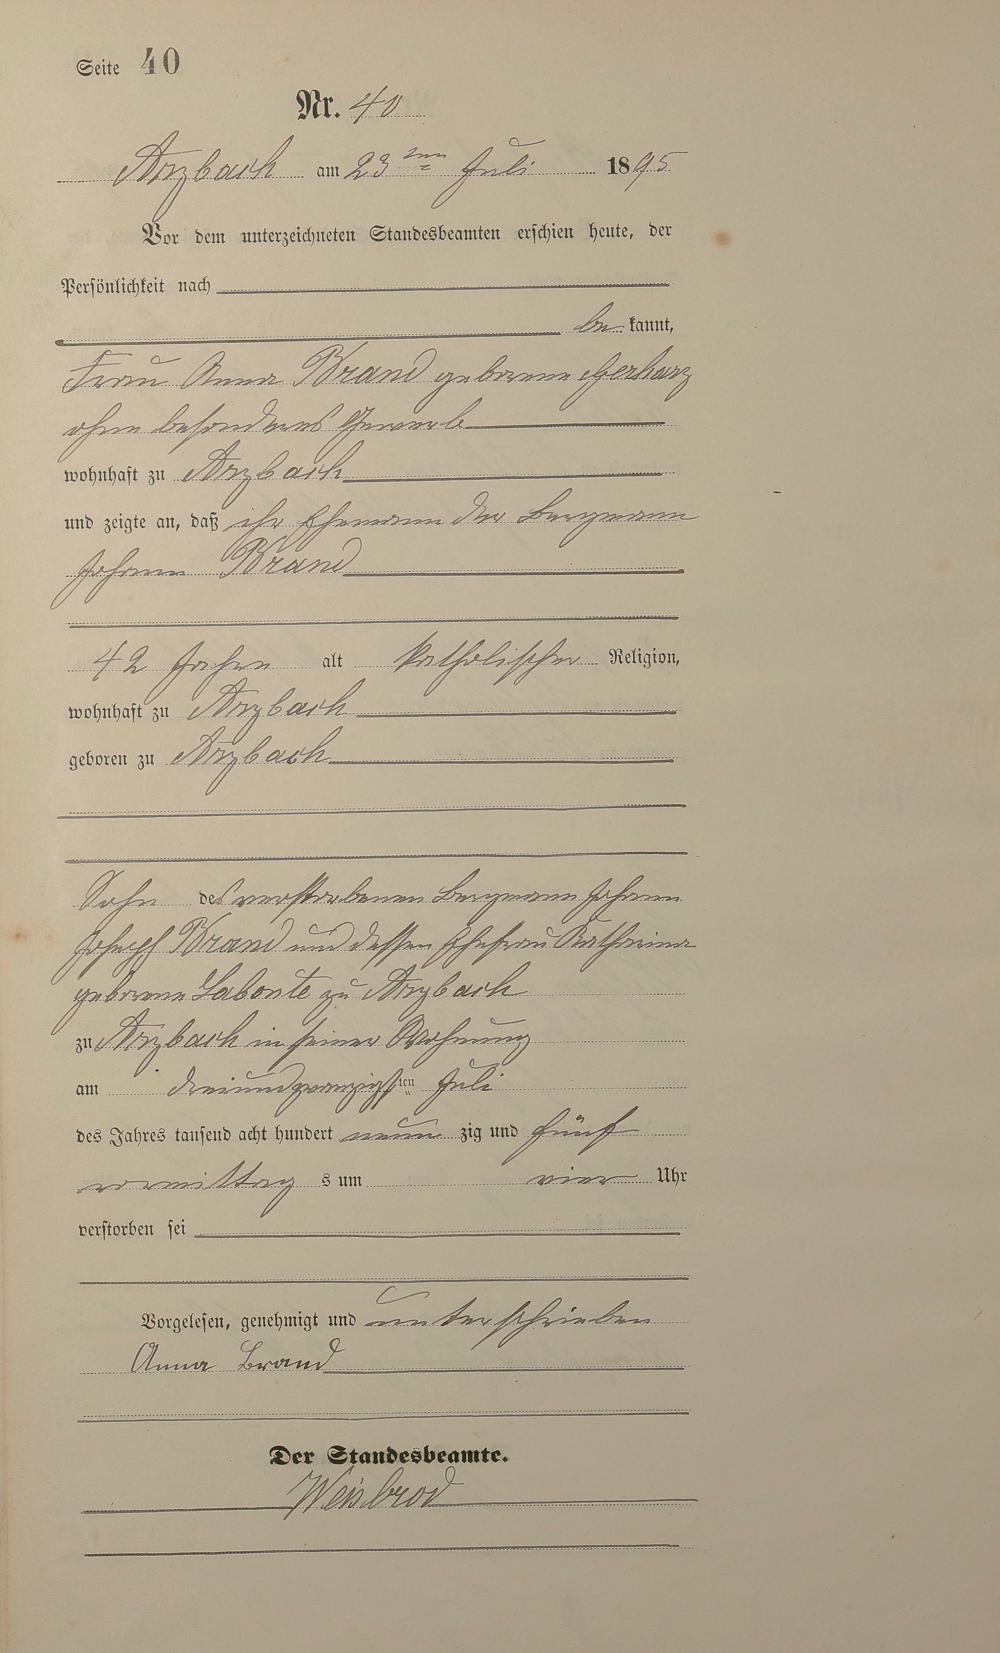 Seite 40
Nr. 40
Arzbach am 23ten Juli 1895
Vor dem unterzeichneten Standesbeamten erschien heute, der
Persönlichkeit nach
be kannt,
Frau Anna Brand geborene Gerharz
ohne besonderes Gewerb
wohnhaft zu Arzbach
und zeigte an, daß ihr Ehemann der Bergmann
Johann Brand
42 Jahre alt katholischer Religion,
wohnhaft zu Arzbach
geboren zu Arzbach
Sohn des verstorbenen Bergmann Johann
Joseph Brand und dessen Ehefrau Katharina
geborene Labonte zu Arzbach
zu Arzbach in seiner Wohnung
am dreiundzwanzigsten Juli
des Jahres tausend acht hundert neun zig und fünf
vormittag s um vier Uhr
verstorben sei
Vorgelesen, genehmigt und unterschrieben
Anna Brand
Der Standesbeamte.
Weisbrod